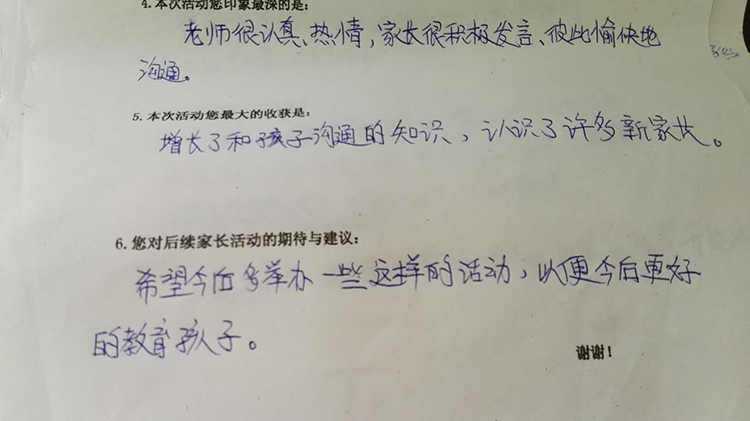 4.本次活动您印象最深的是:
老师很认真、热情,家长很积极发言、彼此愉快地
沟通。
5.本次活动您最大的收获是:
增长了和孩子沟通的知识,认识了许多新家长。
6.您对后续家长活动的期待与建议:
希望今后多举办一些这样的活动,以便今后更好
的教育孩子。
谢谢!